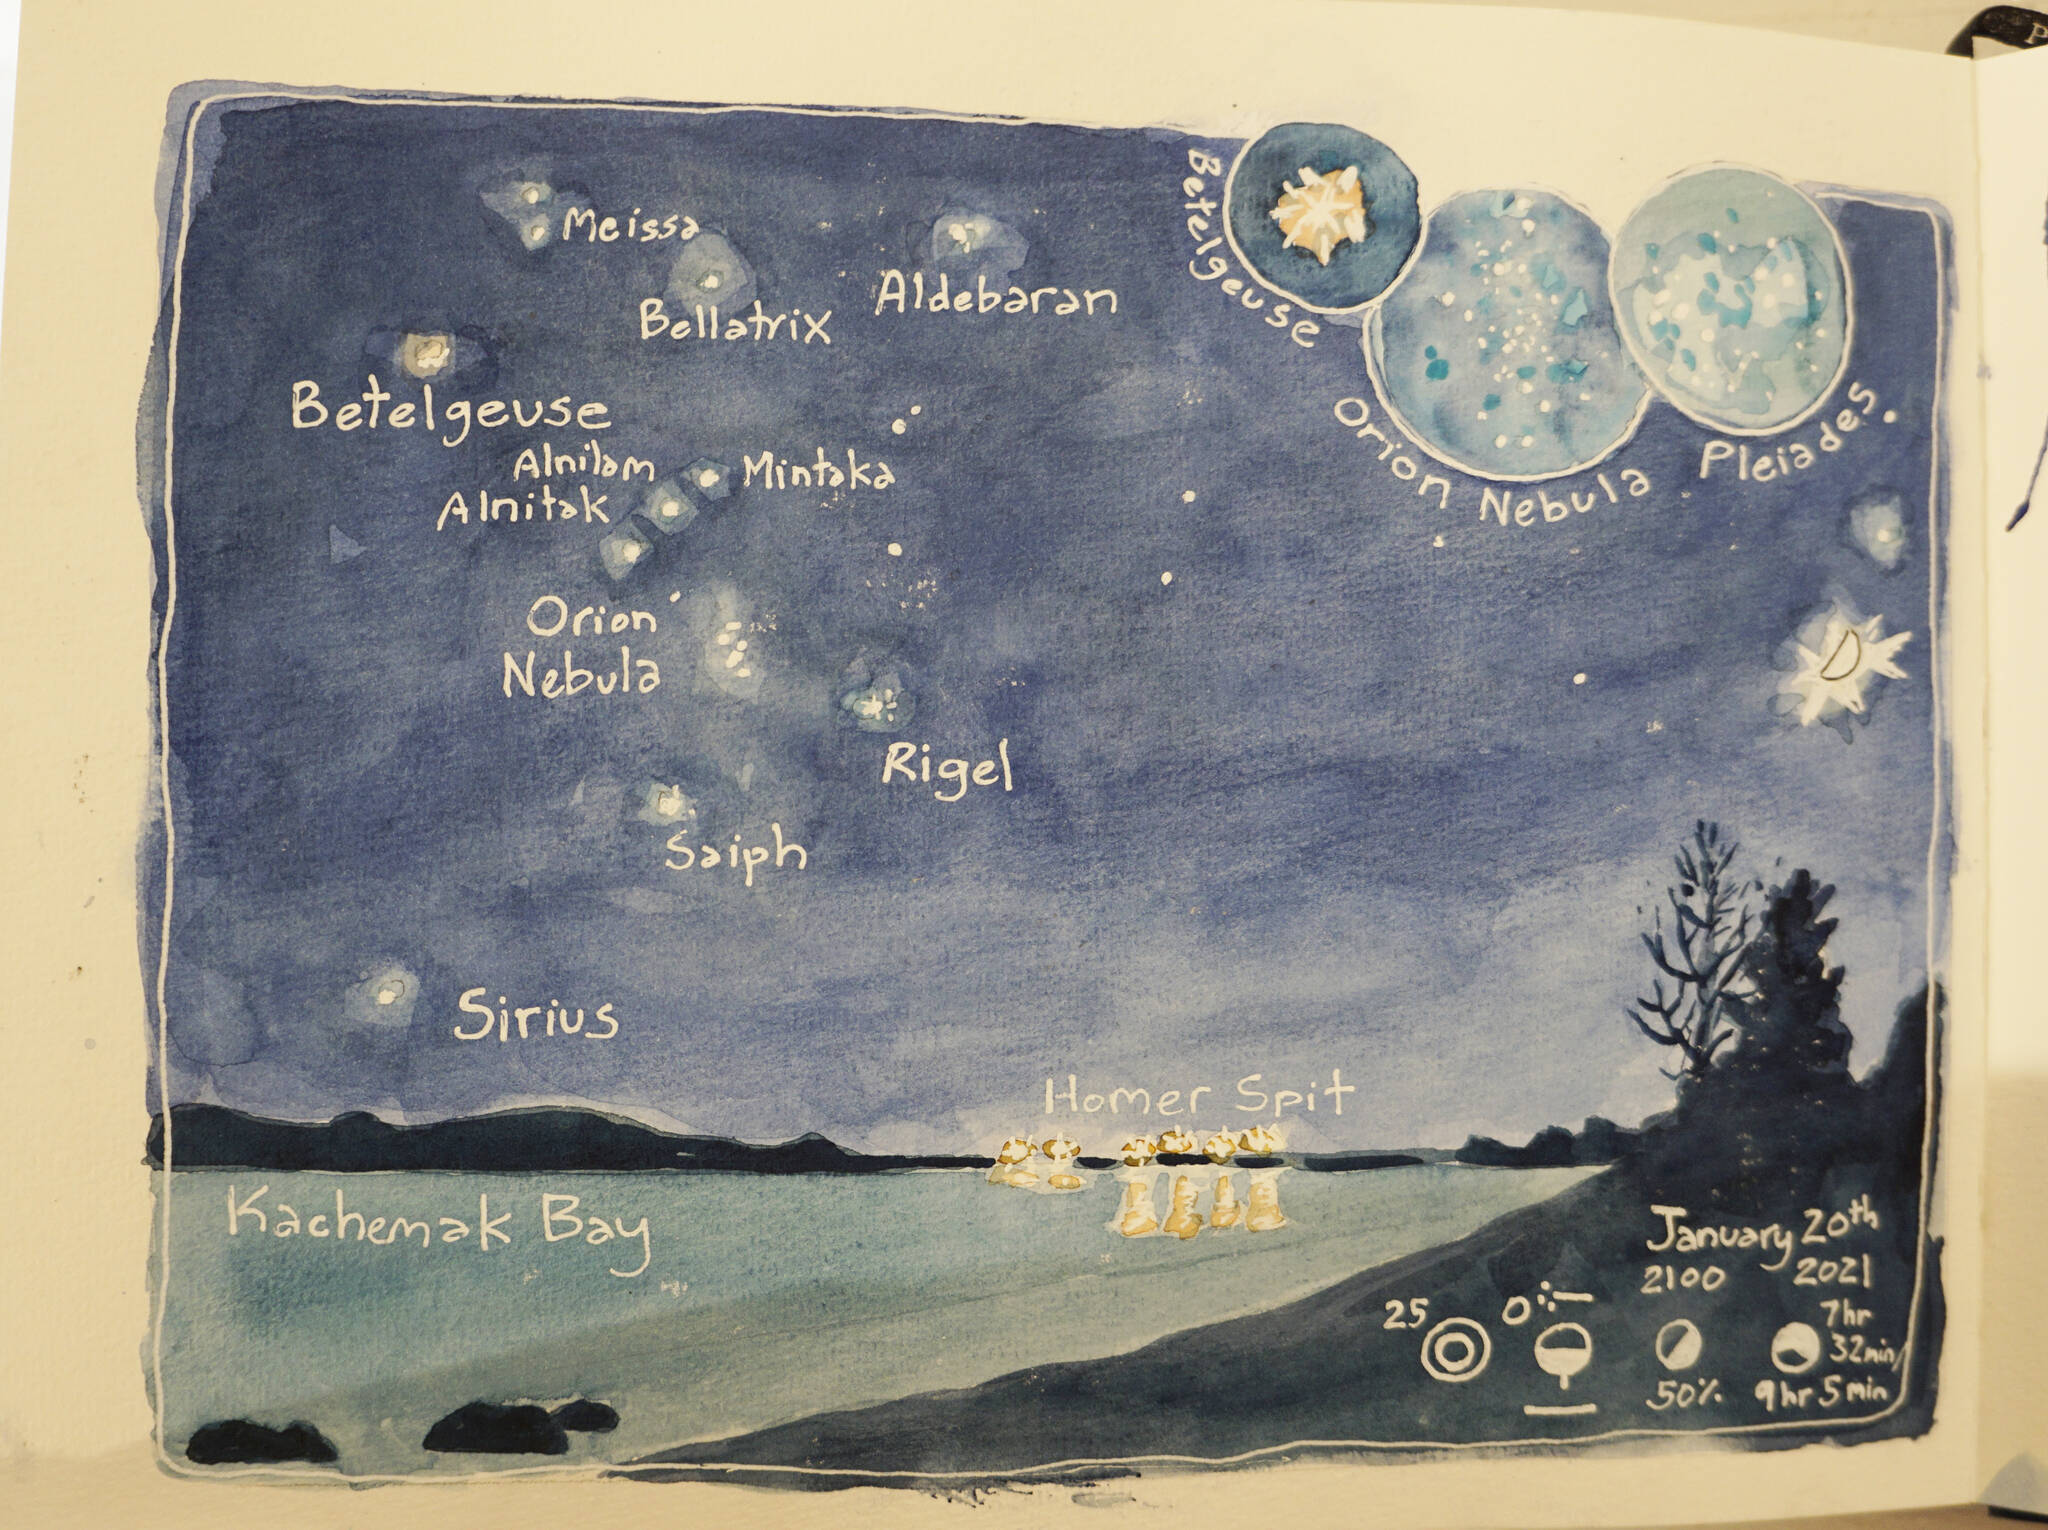 Meissa
Bellatrix
Aldebaran
Betelgeuse
Betelgeuse
Alnilam
Mintaka
Alnitak
Orion Nebula
Pleiades
Orion
Nebula
Rigel
Saiph
Sirius
Homer Spit
Kachemak Bay
January 20th
2100 2021
25
0
7hr
32min
50%
9hr 5min